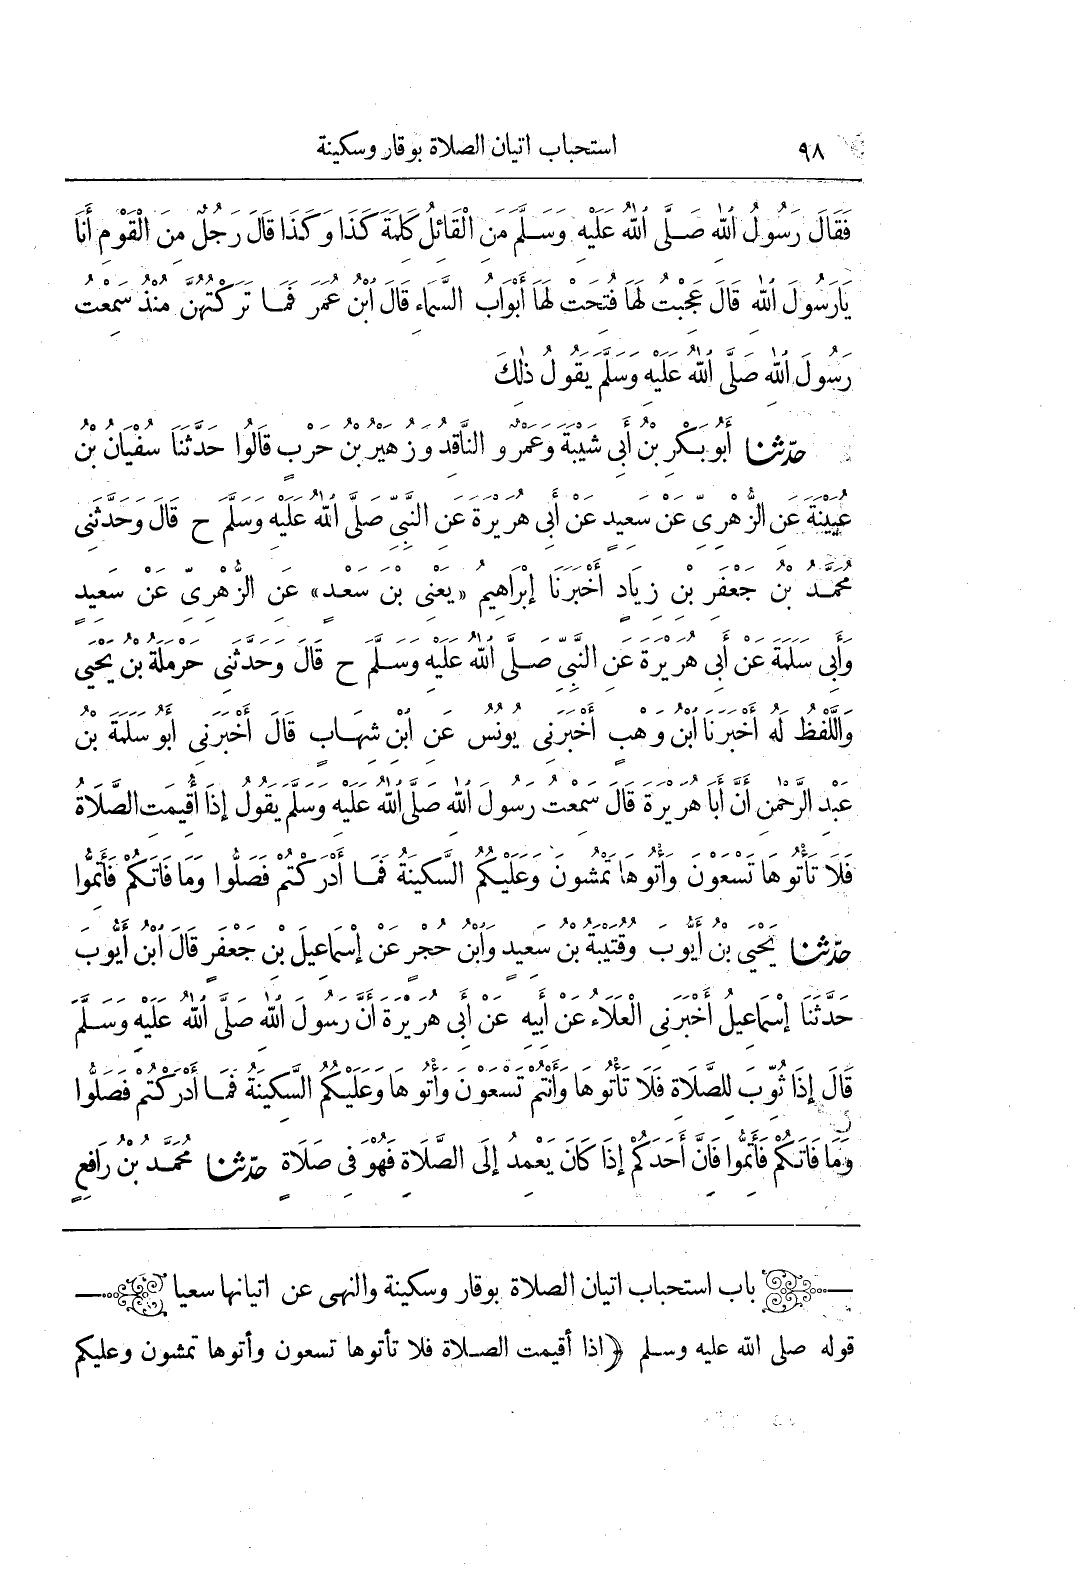 ٩٨ استحباب اتيان الصلاة بوقار وسكينة
فَقَالَ رَسُولُ ٱللهِ صَلَّى ٱللهُ عَلَيْهِ وَسَلَّمَ مَنِ الْقَائِلُ كَلِمَةَ كَذَا وَكَذَا قَالَ رَجُلٌ مِنَ الْقَوْمِ أَنَا
يَارَسُولَ ٱللهِ قَالَ عَجِبْتُ لَهَا فُتِحَتْ لَهَا أَبْوَابُ السَّمَاءِ قَالَ ٱبْنُ عُمَرَ فَمَا تَرَكْتُهُنَّ مُنْذُ سَمِعْتُ
رَسُولَ ٱللهِ صَلَّى ٱللهُ عَلَيْهِ وَسَلَّمَ يَقُولُ ذٰلِكَ
حدّثنا أَبُو بَكْرِ بْنُ أَبِي شَيْبَةَ وَعَمْرٌو النَّاقِدُ وَزُهَيْرُ بْنُ حَرْبٍ قَالُوا حَدَّثَنَا سُفْيَانُ بْنُ
عُيَيْنَةَ عَنِ الزُّهْرِيِّ عَنْ سَعِيدٍ عَنْ أَبِي هُرَيْرَةَ عَنِ النَّبِيِّ صَلَّى ٱللهُ عَلَيْهِ وَسَلَّمَ ح قَالَ وَحَدَّثَنِي
مُحَمَّدُ بْنُ جَعْفَرِ بْنِ زِيَادٍ أَخْبَرَنَا إِبْرَاهِيمُ «يَعْنِي بْنَ سَعْدٍ» عَنِ الزُّهْرِيِّ عَنْ سَعِيدٍ
وَأَبِي سَلَمَةَ عَنْ أَبِي هُرَيْرَةَ عَنِ النَّبِيِّ صَلَّى ٱللهُ عَلَيْهِ وَسَلَّمَ ح قَالَ وَحَدَّثَنِي حَرْمَلَةُ بْنُ يَحْيَى
وَاللَّفْظُ لَهُ أَخْبَرَنَا ٱبْنُ وَهْبٍ أَخْبَرَنِي يُونُسُ عَنِ ٱبْنِ شِهَابٍ قَالَ أَخْبَرَنِي أَبُو سَلَمَةَ بْنُ
عَبْدِ الرَّحْمٰنِ أَنَّ أَبَا هُرَيْرَةَ قَالَ سَمِعْتُ رَسُولَ ٱللهِ صَلَّى ٱللهُ عَلَيْهِ وَسَلَّمَ يَقُولُ إِذَا أُقِيمَتِ الصَّلَاةُ
فَلَا تَأْتُوهَا تَسْعَوْنَ وَأْتُوهَا تَمْشُونَ وَعَلَيْكُمُ السَّكِينَةُ فَمَا أَدْرَكْتُمْ فَصَلُّوا وَمَا فَاتَكُمْ فَأَتِمُّوا
حدّثنا يَحْيَى بْنُ أَيُّوبَ وَقُتَيْبَةُ بْنُ سَعِيدٍ وَٱبْنُ حُجْرٍ عَنْ إِسْمَاعِيلَ بْنِ جَعْفَرٍ قَالَ ٱبْنُ أَيُّوبَ
حَدَّثَنَا إِسْمَاعِيلُ أَخْبَرَنِي الْعَلَاءُ عَنْ أَبِيهِ عَنْ أَبِي هُرَيْرَةَ أَنَّ رَسُولَ ٱللهِ صَلَّى ٱللهُ عَلَيْهِ وَسَلَّمَ
قَالَ إِذَا ثُوِّبَ لِلصَّلَاةِ فَلَا تَأْتُوهَا وَأَنْتُمْ تَسْعَوْنَ وَأْتُوهَا وَعَلَيْكُمُ السَّكِينَةُ فَمَا أَدْرَكْتُمْ فَصَلُّوا
وَمَا فَاتَكُمْ فَأَتِمُّوا فَإِنَّ أَحَدَكُمْ إِذَا كَانَ يَعْمِدُ إِلَى الصَّلَاةِ فَهُوَ فِي صَلَاةٍ حدّثنا مُحَمَّدُ بْنُ رَافِعٍ
باب استحباب اتيان الصلاة بوقار وسكينة والنهى عن اتيانها سعيا
قوله صلى الله عليه وسلم ﴿اذا أقيمت الصلاة فلا تأتوها تسعون وأتوها تمشون وعليكم